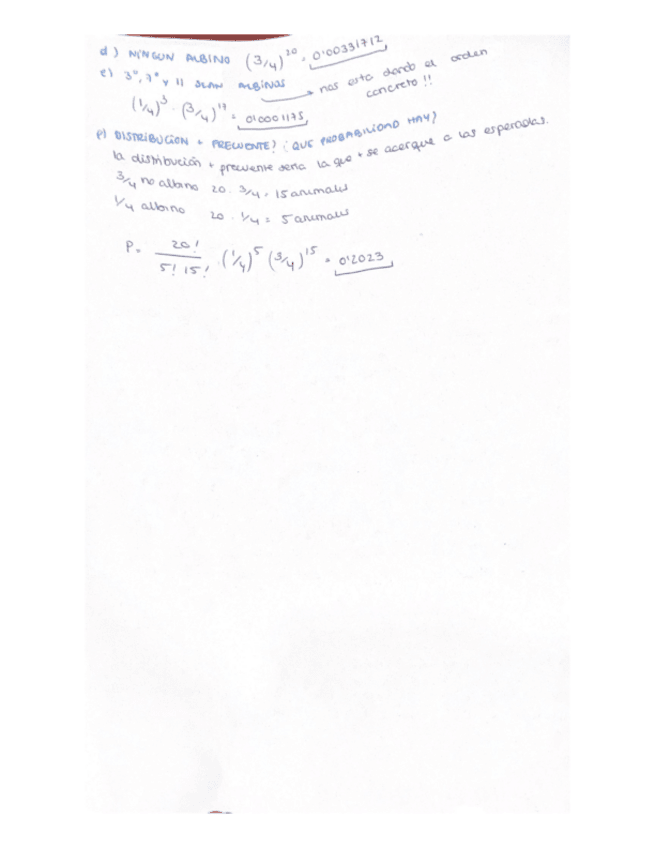 d) NINGUN ALBINO (3/4)^20 = 0'00331712
e) 3º, 7º y 11 SEAN ALBINOS → nos esta dando el orden concreto!!
(1/4)^3 · (3/4)^17 = 0'0001175
f) DISTRIBUCION + FRECUENTE? ¿QUE PROBABILIDAD HAY?
la distribución + frecuente seria la que + se acerque a las esperadas.
3/4 no albino 20 · 3/4 = 15 animales
1/4 albino 20 · 1/4 = 5 animales
P = 20! / 5! 15! · (1/4)^5 (3/4)^15 = 0'2023